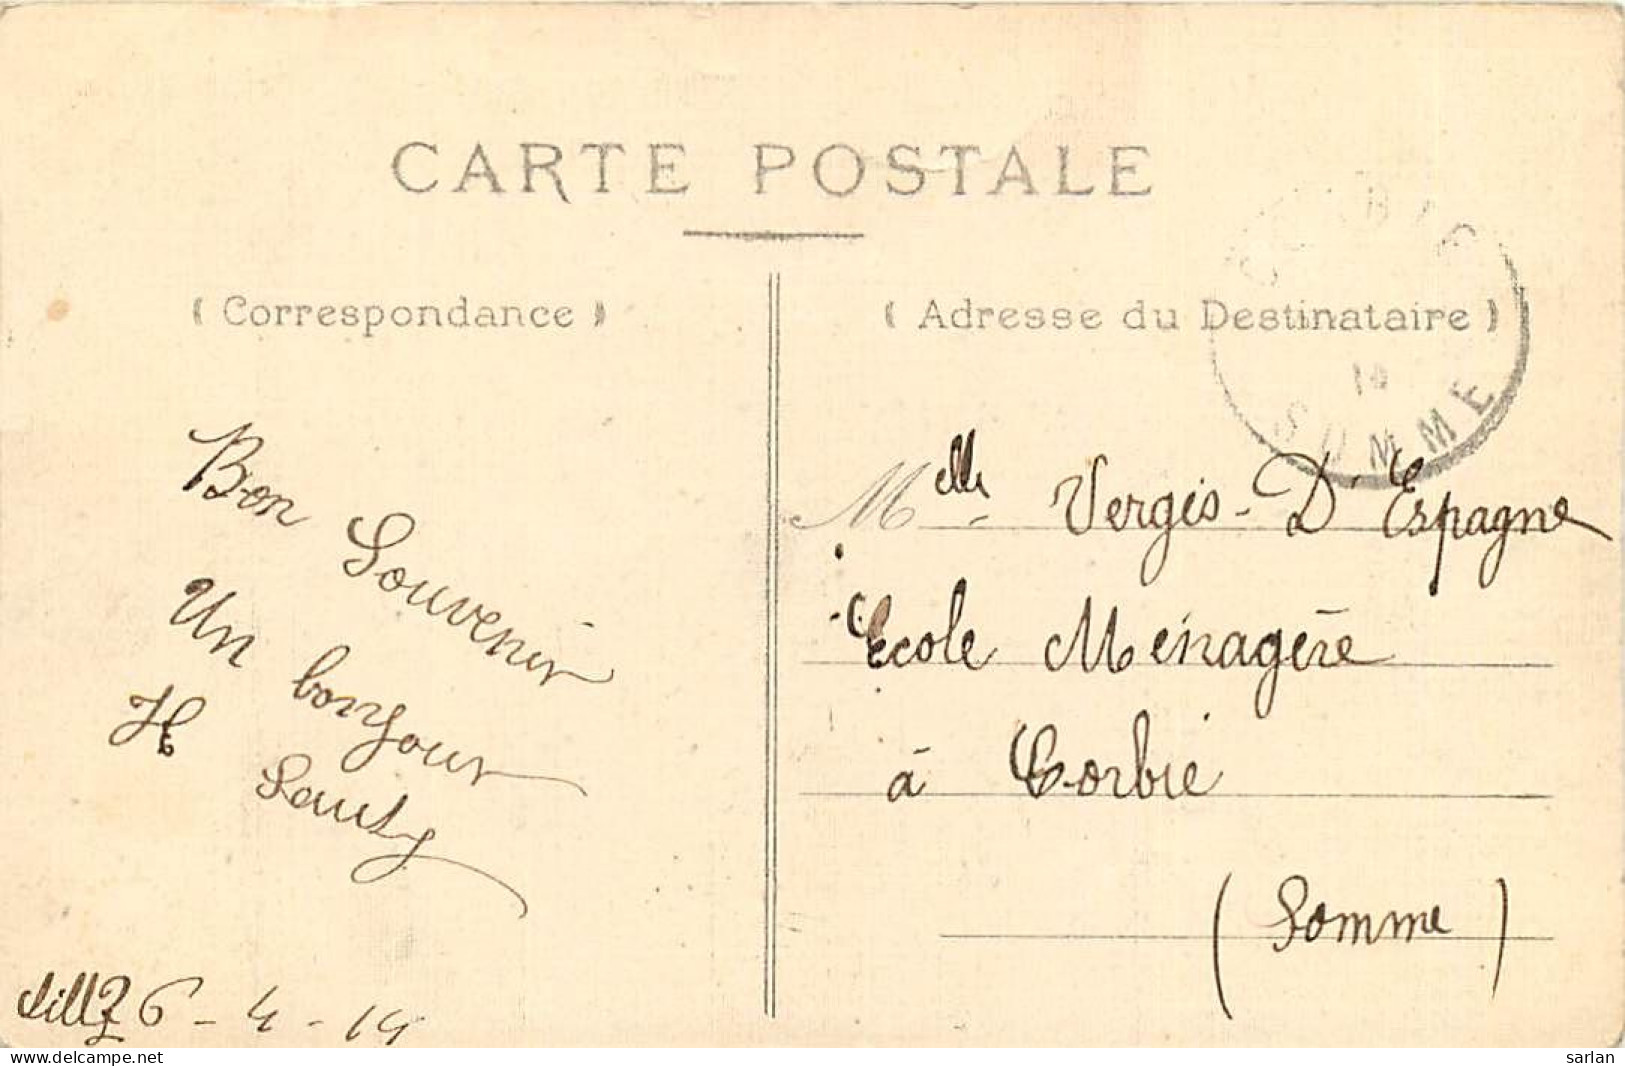 CARTE POSTALE
( Correspondance )
( Adresse du Destinataire )
CORBIE
14
SOMME
Bon Souvenir
Un bonjour
H Sauty
26 - 4 - 14
Melle Vergis - D'Espagne
Ecole Ménagère
à Corbie
(Somme)
delcampe.net
sarlan